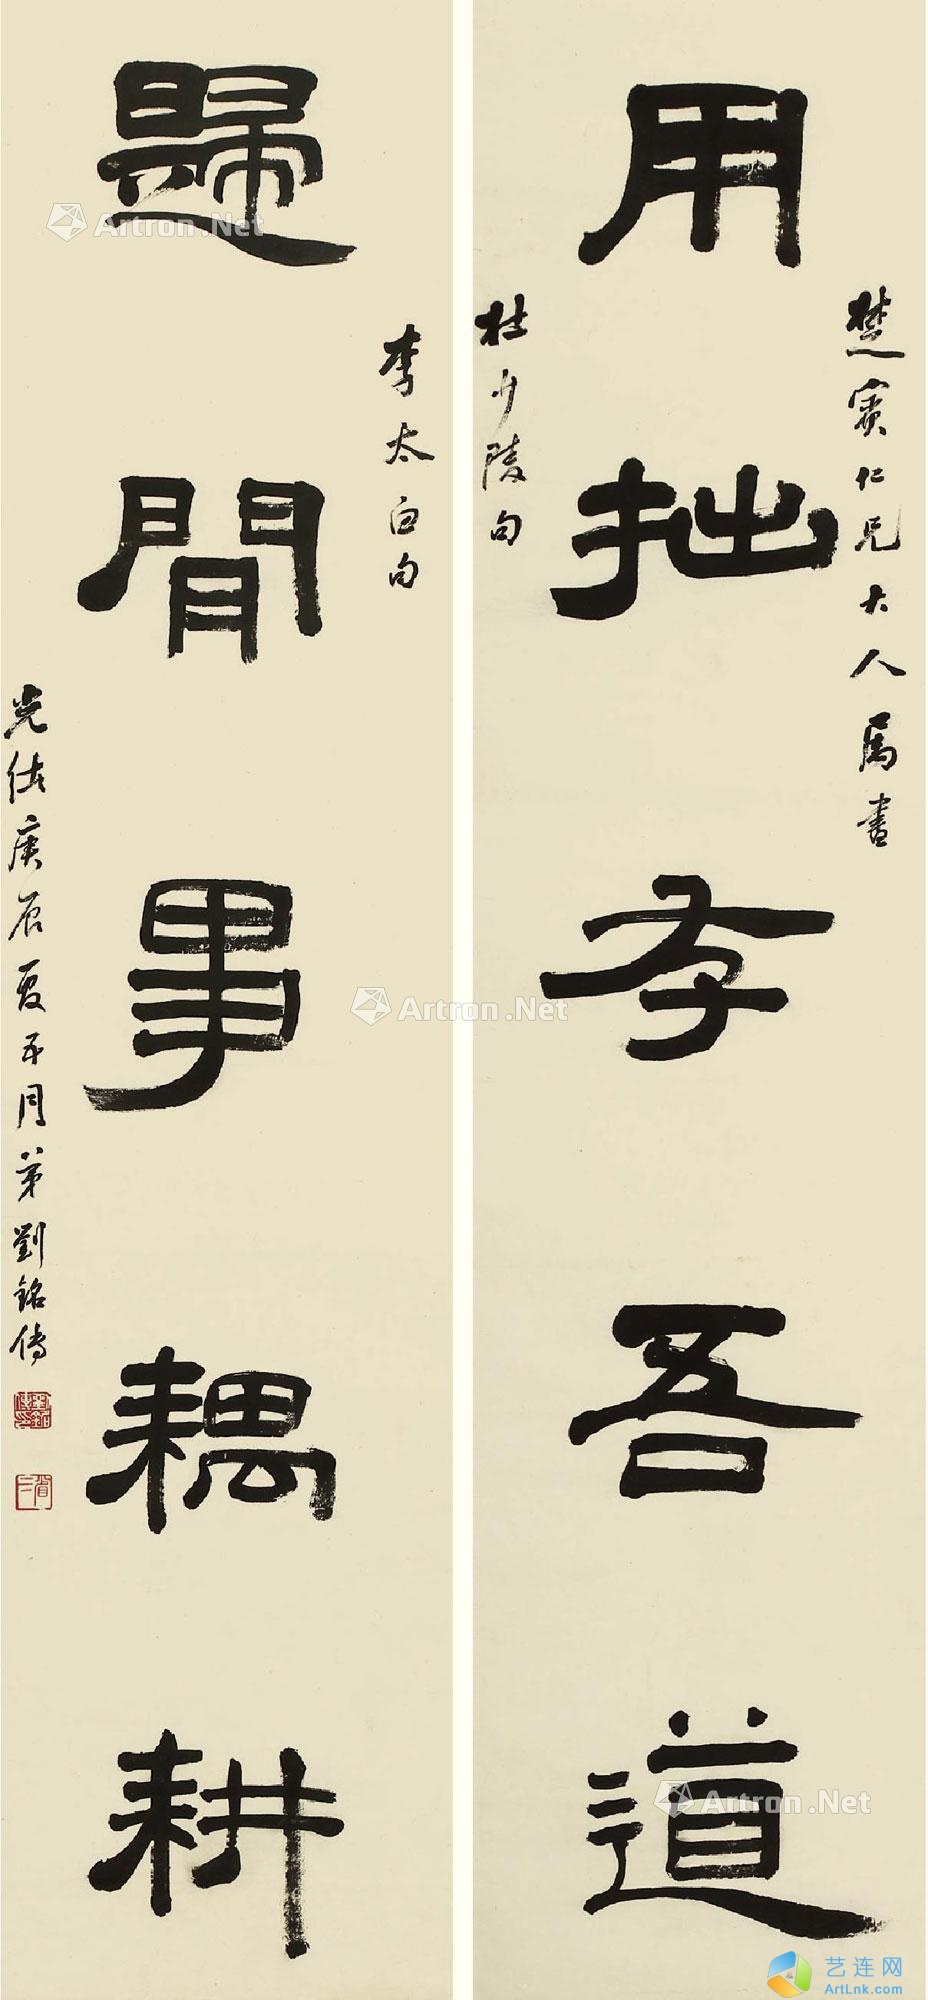 楚賓仁兄大人属書
用拙存吾道
杜少陵句
李太白句
歸閒事耦耕
光緒庚辰夏五月弟劉銘傳
劉銘傳印
省三
Artron.Net
Artron.Net
Artron.Net
艺连网
ArtLnk.com